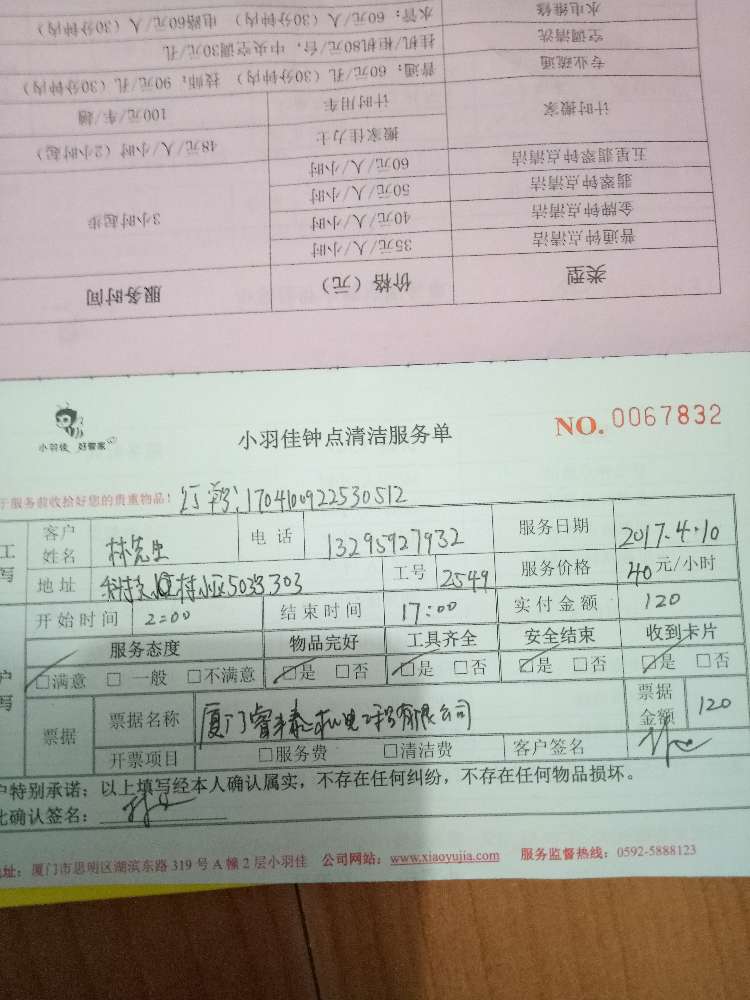 水电维修 水管：60元/人（30分钟内） 电路60元/人（30分钟内）
空调清洗 挂机/柜机80元/台，中央空调30元/孔
专业疏通 普通：60元/孔（30分钟内） 技师：90元/孔（30分钟内）
计时搬家 计时用车 100元/车/趟
搬家佳力士 48元/人/小时（2小时起）
五星翡翠钟点清洁 60元/人/小时
翡翠钟点清洁 50元/人/小时 3小时起步
金牌钟点清洁 40元/人/小时
普通钟点清洁 35元/人/小时
类型 价格（元） 服务时间
小羽佳 好管家
小羽佳钟点清洁服务单 NO. 0067832
于服务前收拾好您的贵重物品！ 1704100922530512
客户姓名 林先生 电话 13295927932 服务日期 2017.4.10
地址 5033 303 工号 2549 服务价格 40元/小时
开始时间 2:00 结束时间 17:00 实付金额 120
服务态度 物品完好 工具齐全 安全结束 收到卡片
□满意 □一般 □不满意 □是 □否 □是 □否 □是 □否 □是 □否
票据 票据名称 厦门睿丰泰机电工程有限公司 票据金额 120
开票项目 □服务费 □清洁费 客户签名
户特别承诺：以上填写经本人确认属实，不存在任何纠纷，不存在任何物品损坏。
此确认签名：
地址：厦门市思明区湖滨东路 319 号 A 幢 2 层小羽佳 公司网站：www.xiaoyujia.com 服务监督热线：0592-5888123